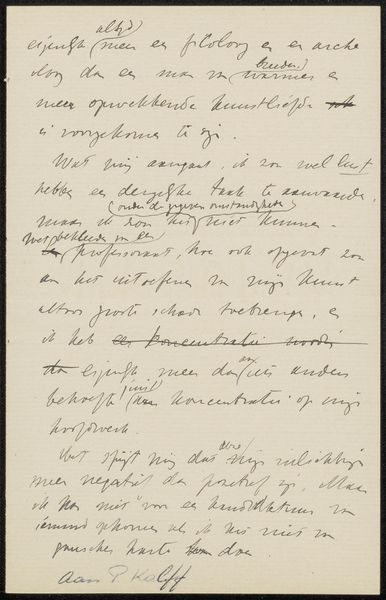 altijd
eigenlijk meer een filoloog en een archeo
loog dan een man van warmere en
breedere
meer opwekkende kunstliefde
is voorgekomen te zijn.
Wat mij aangaat, ik zou wel lust
hebben een dergelijke taak te aanvaarden,
(onder de gegeven omstandigheden)
maar ik zou het niet kunnen.
Het bekleeden van een
professoraat, hoe ook opgevat zou
aan het uitoefenen van mijn kunst
altoos groote schade toebrengen, en
ik heb een koncentratie noodig
dan eigenlijk meer dan aan iets anders
behoefte juist aan koncentratie op mijn
hoofdwerk.
Het spijt mij dat deze mijn inlichting
meer negatief dan positief zijn. Maar
ik kan niet voor een kandidatuur van
iemand opkomen als ik het niet van
ganscher harte kan doen.
Aan P Kalff